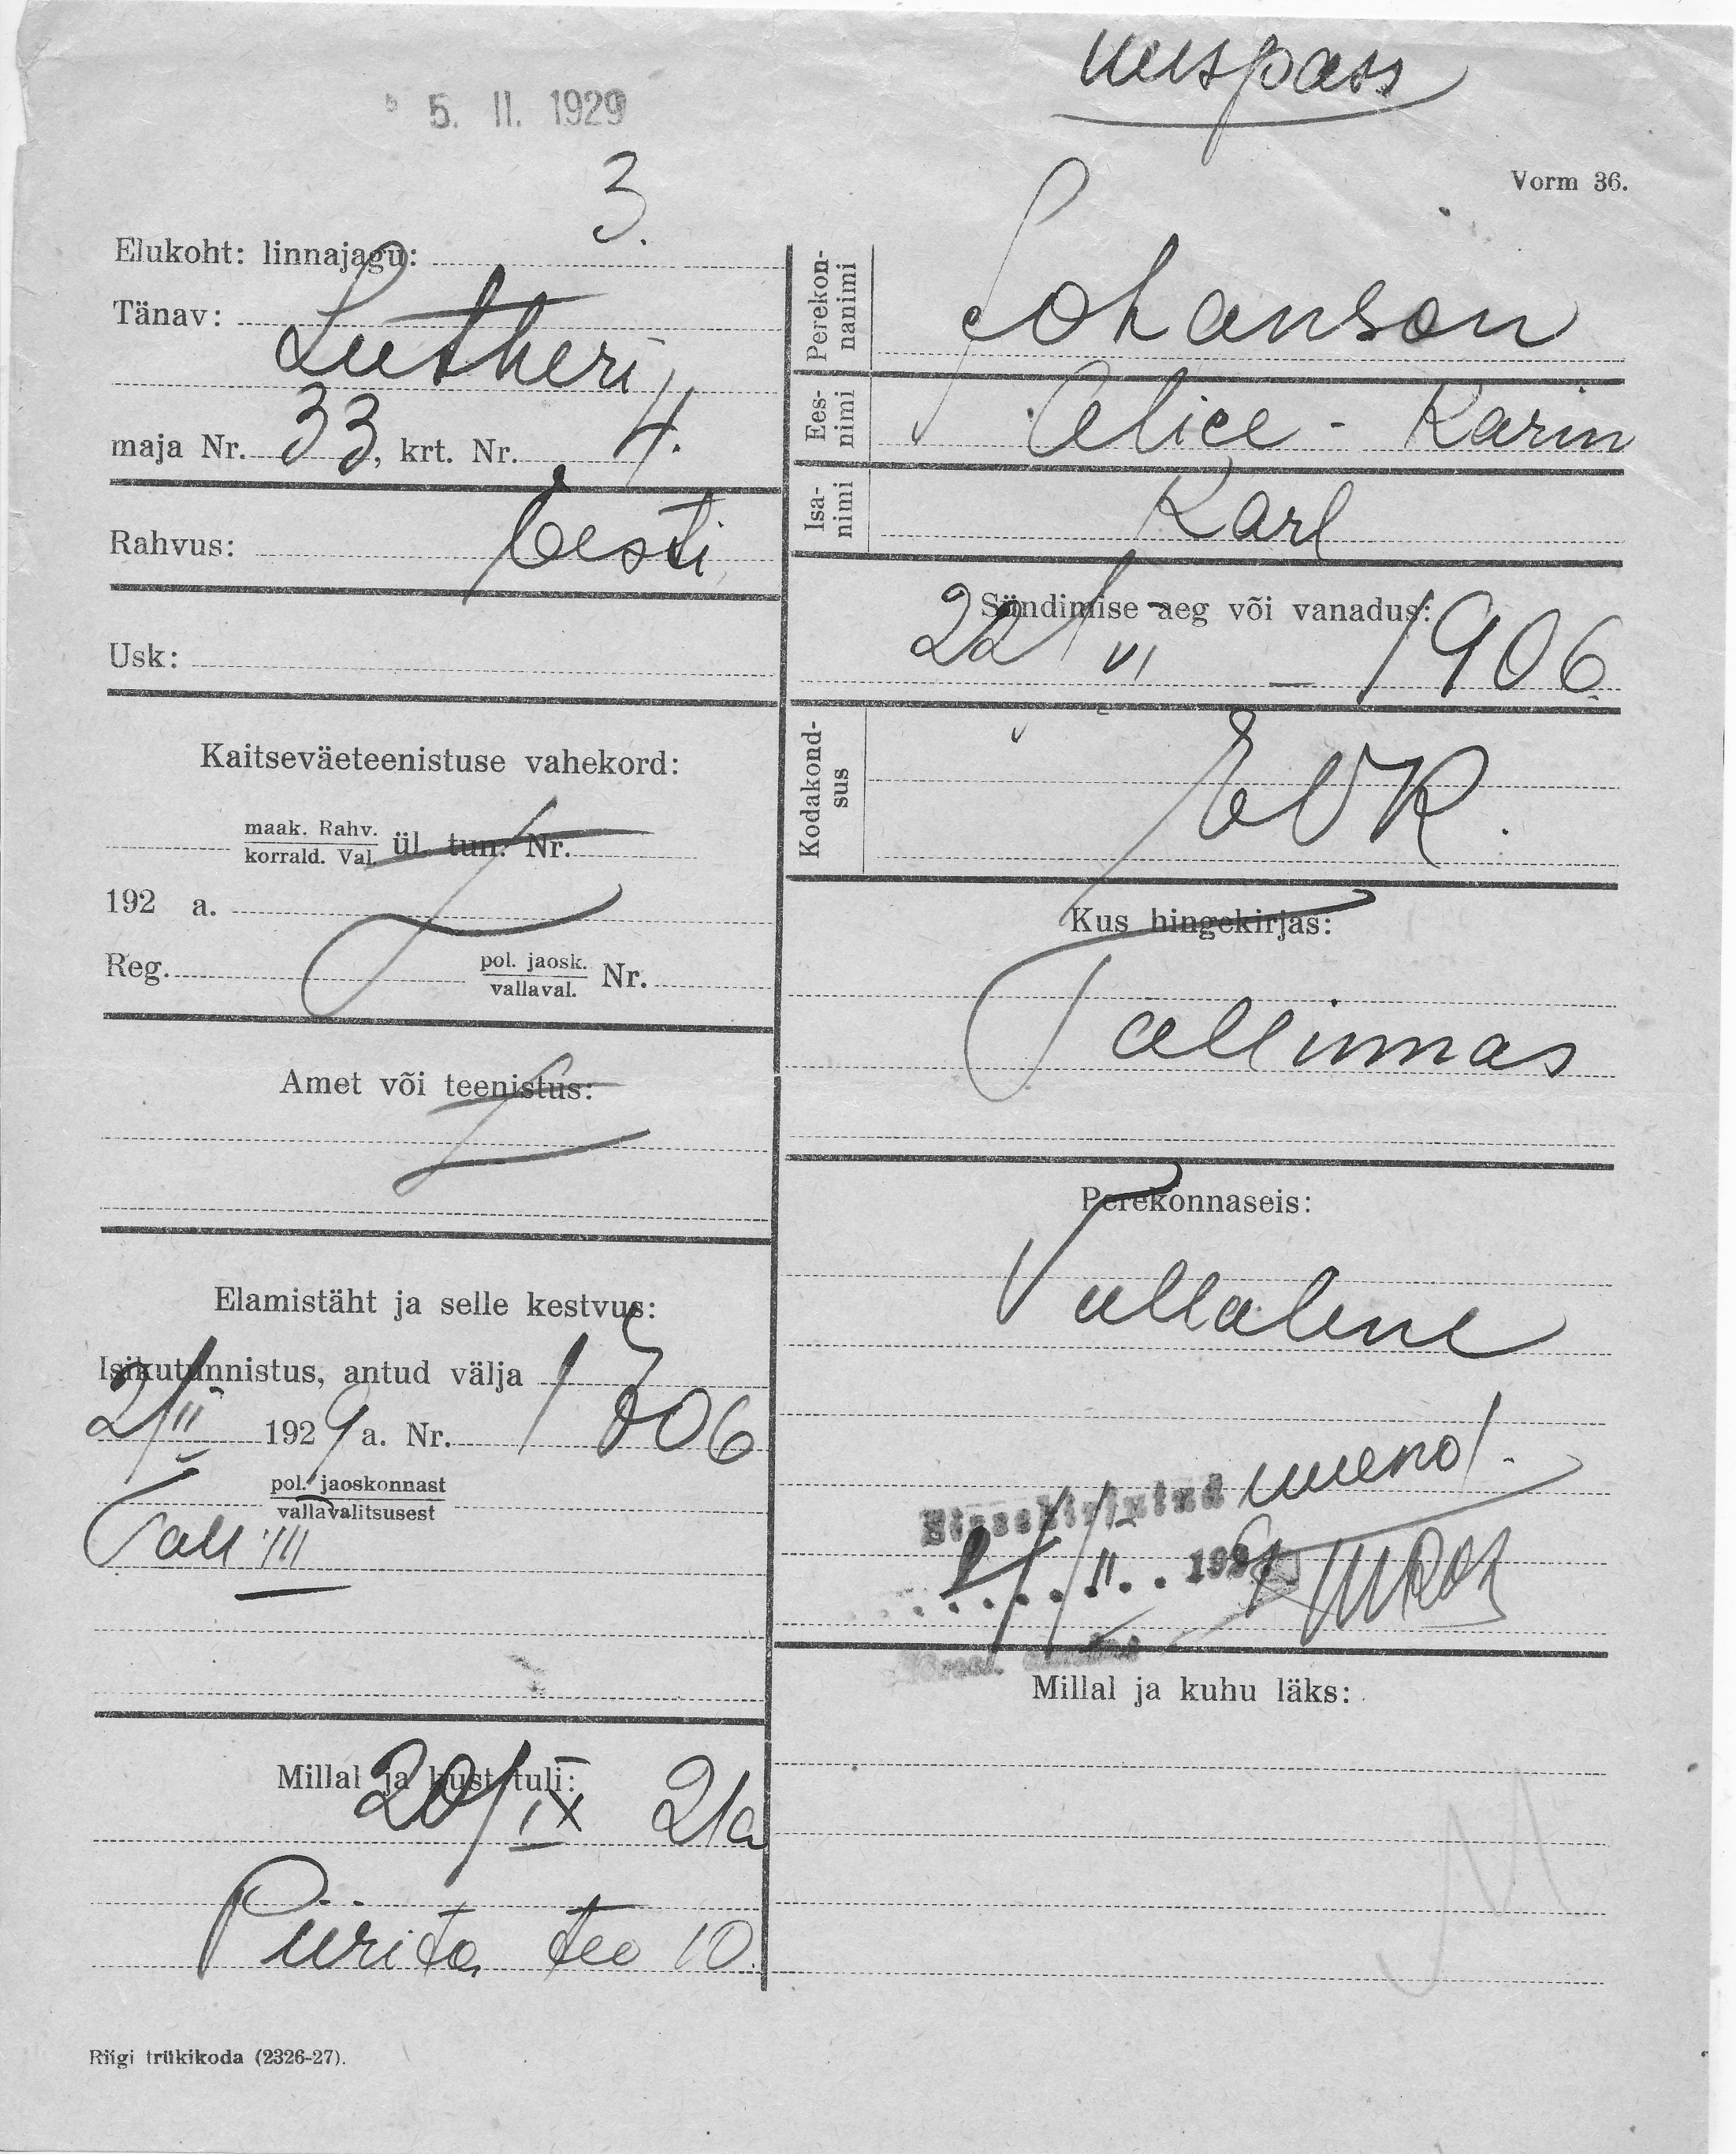 uuspass
5. II. 1929
Vorm 36.
Elukoht: linnajagu: 3.
Tänav: Lutheri
maja Nr. 33, krt. Nr. 4.
Rahvus: Eesti
Usk:
Kaitseväeteenistuse vahekord:
maak. Rahv.
korrald. Val. ül. tun. Nr.
192 a.
Reg. pol. jaosk.
vallaval. Nr.
Amet või teenistus:
Elamistäht ja selle kestvus:
Isikutunnistus, antud välja
2/II 1929 a. Nr.
pol. jaoskonnast
vallavalitsusest
Tall III
Millal ja kust tuli:
20/IX 21a
Piirita tee 10.
Perekon-
nanimi
Johanson
Ees-
nimi
Alice - Karin
Isa-
nimi
Karl
Sündimise aeg või vanadus:
22/VI – 1906
Kodakond-
sus
EVK.
Kus hingekirjas:
Tallinnas
Perekonnaseis:
Vallaline
Sissekirjutud uuend.
II. 192
Millal ja kuhu läks:
Riigi trükikoda (2326-27).